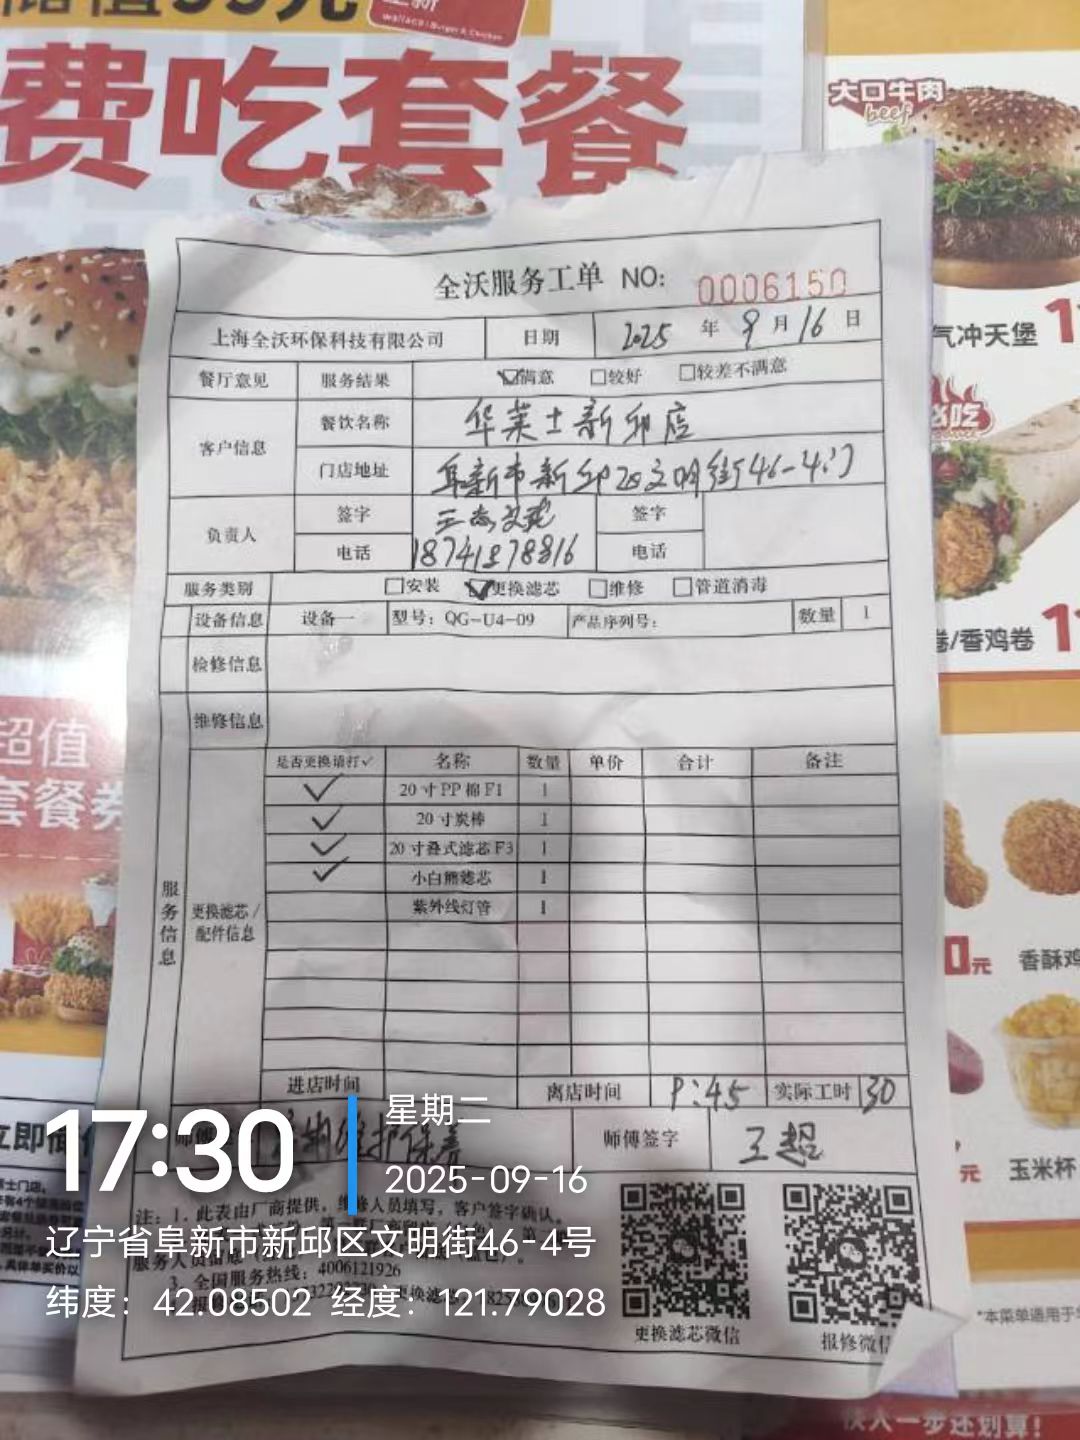 wallace | Burger & Chicken
费吃套餐
大口牛肉
beef
气冲天堡
全沃服务工单 NO: 0006150
上海全沃环保科技有限公司 日期 2025 年 9 月 16 日
餐厅意见 服务结果 ☑满意 □较好 □较差不满意
客户信息 餐饮名称 华莱士新邱店
门店地址 阜新市新邱区文明街46-4门
负责人 签字 签字
电话 电话
服务类别 □安装 ☑更换滤芯 □维修 □管道消毒
设备信息 设备一 型号：QG-U4-09 产品序列号： 数量 1
卷/香鸡卷
检修信息
维修信息
超值
套餐券
是否更换请打✓ 名称 数量 单价 合计 备注
✓ 20寸PP棉F1 1
✓ 20寸炭棒 1
✓ 20寸叠式滤芯F3 1
✓ 小白熊滤芯 1
紫外线灯管 1
服务信息
更换滤芯/
配件信息
0元
进店时间 离店时间 P:45 实际工时 30
师傅签字 王超
玉米杯
17:30
星期二
2025-09-16
注：1. 此表由厂商提供，维修人员填写，客户签字确认。
辽宁省阜新市新邱区文明街46-4号
3. 全国服务热线：4006121926
纬度：42.08502 经度：121.79028
更换滤芯微信
报修微信